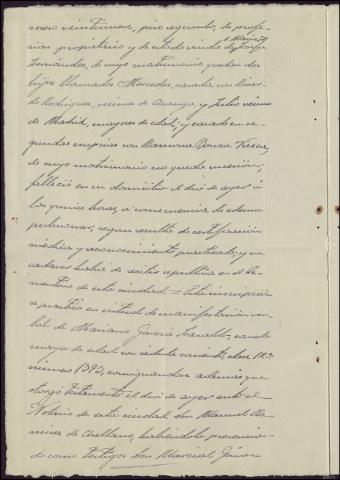 mero veintinueve, piso segundo, de profe-
sión propietario y de estado viudo de
Hernández, de cuyo matrimonio quedan dos
hijos llamados Mercedes, casada con
de Rodríguez, vecina de y Julio vecino
de Madrid, mayores de edad; y casado en se-
gundas nupcias con Ramona
de cuyo matrimonio no queda sucesión;
falleció en su domicilio el día de ayer a
las quince horas, a consecuencia de edema
pulmonar, según resulta de certificación
médica y reconocimiento practicado; y su
cadáver habrá de recibir sepultura en el Ce-
menterio de esta ciudad = Esta inscripción
se practica en virtud de manifestación ver-
bal de Mariano García casado
mayor de edad con cédula corriente, clase 12ª
número consignándose además que
otorgó testamento el día de ayer ante el
Notario de esta ciudad Don Manuel Ra-
mírez de Arellano, habiéndolo presencia-
do como testigos Don Marcial Gómez